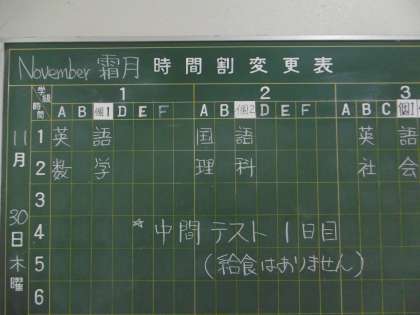 November 霜月 時間割変更表
学級 1 2 3
時間 A B 個1 D E F A B 個2 D E F A B C 個1
11月 1 英語 国語 英語
2 数学 理科 社会
3
30日 4 ☆中間テスト 1日目
木曜 5 (給食はおりません)
6